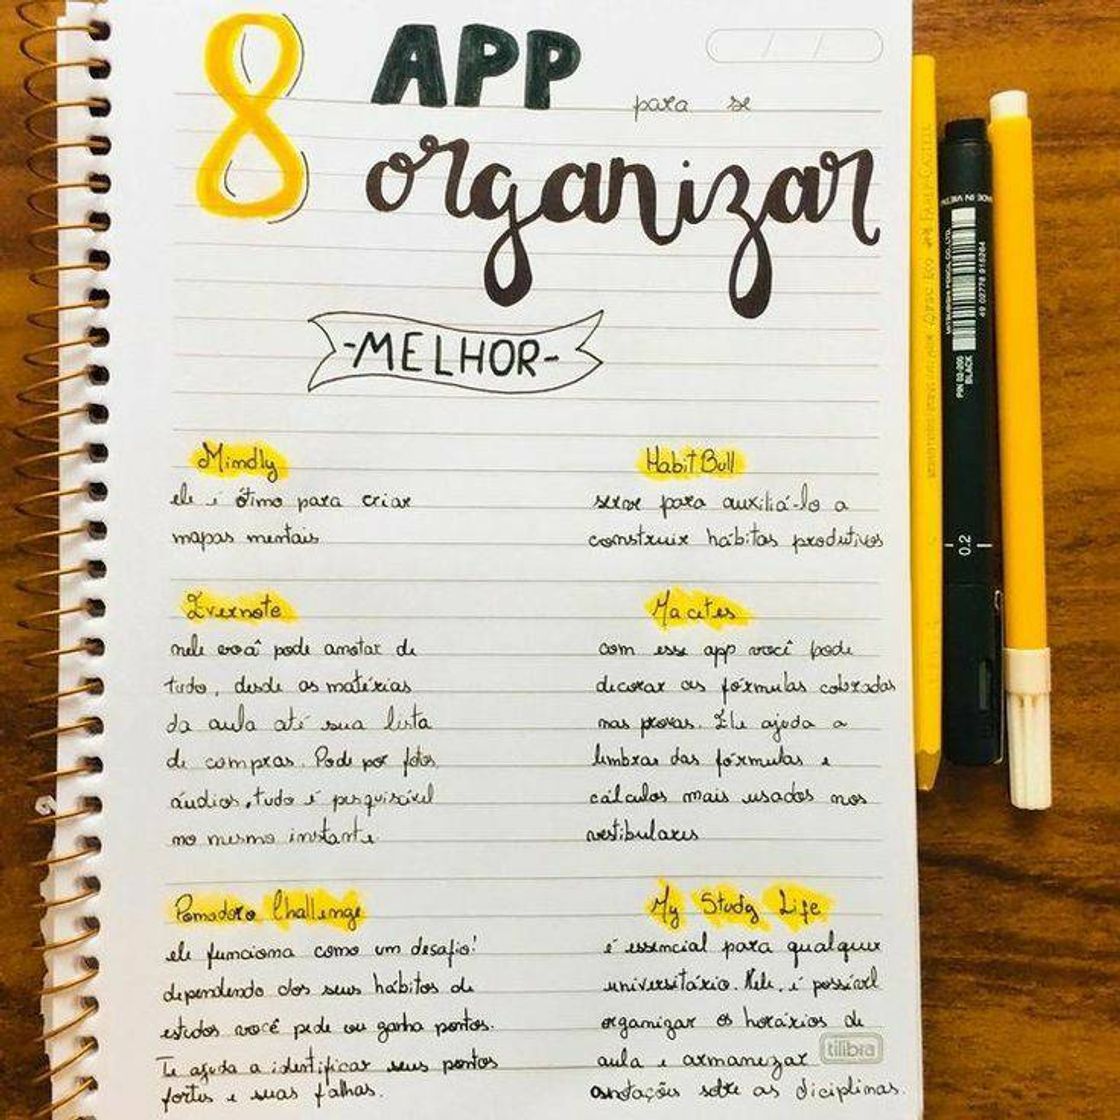 8 APP para se
organizar
-MELHOR-
Mindly
ele é ótimo para criar
mapas mentais
HabitBull
serve para auxiliá-lo a
construir hábitos produtivos
Evernote
nele você pode anotar de
tudo, desde as matérias
da aula até sua lista
de compras. Pode por fotos,
áudios, tudo é pesquisável
no mesmo instante.
Macetes
com esse app você pode
decorar as fórmulas cobradas
nas provas. Ele ajuda a
lembrar das fórmulas e
cálculos mais usados nos
vestibulares
Pomodoro Challenge
ele funciona como um desafio!
dependendo dos seus hábitos de
estudos você pede ou ganha pontos.
Te ajuda a identificar seus pontos
fortes e suas falhas.
My Study Life
é essencial para qualquer
universitário. Nele, é possível
organizar os horários de
aula e armanezar
anotações sobre as diciplinas.
tilibra
MADE IN VIETNAM
MITSUBISHI PENCIL CO., LTD.
49 02778 915264
PIN 02-200
BLACK
0.2